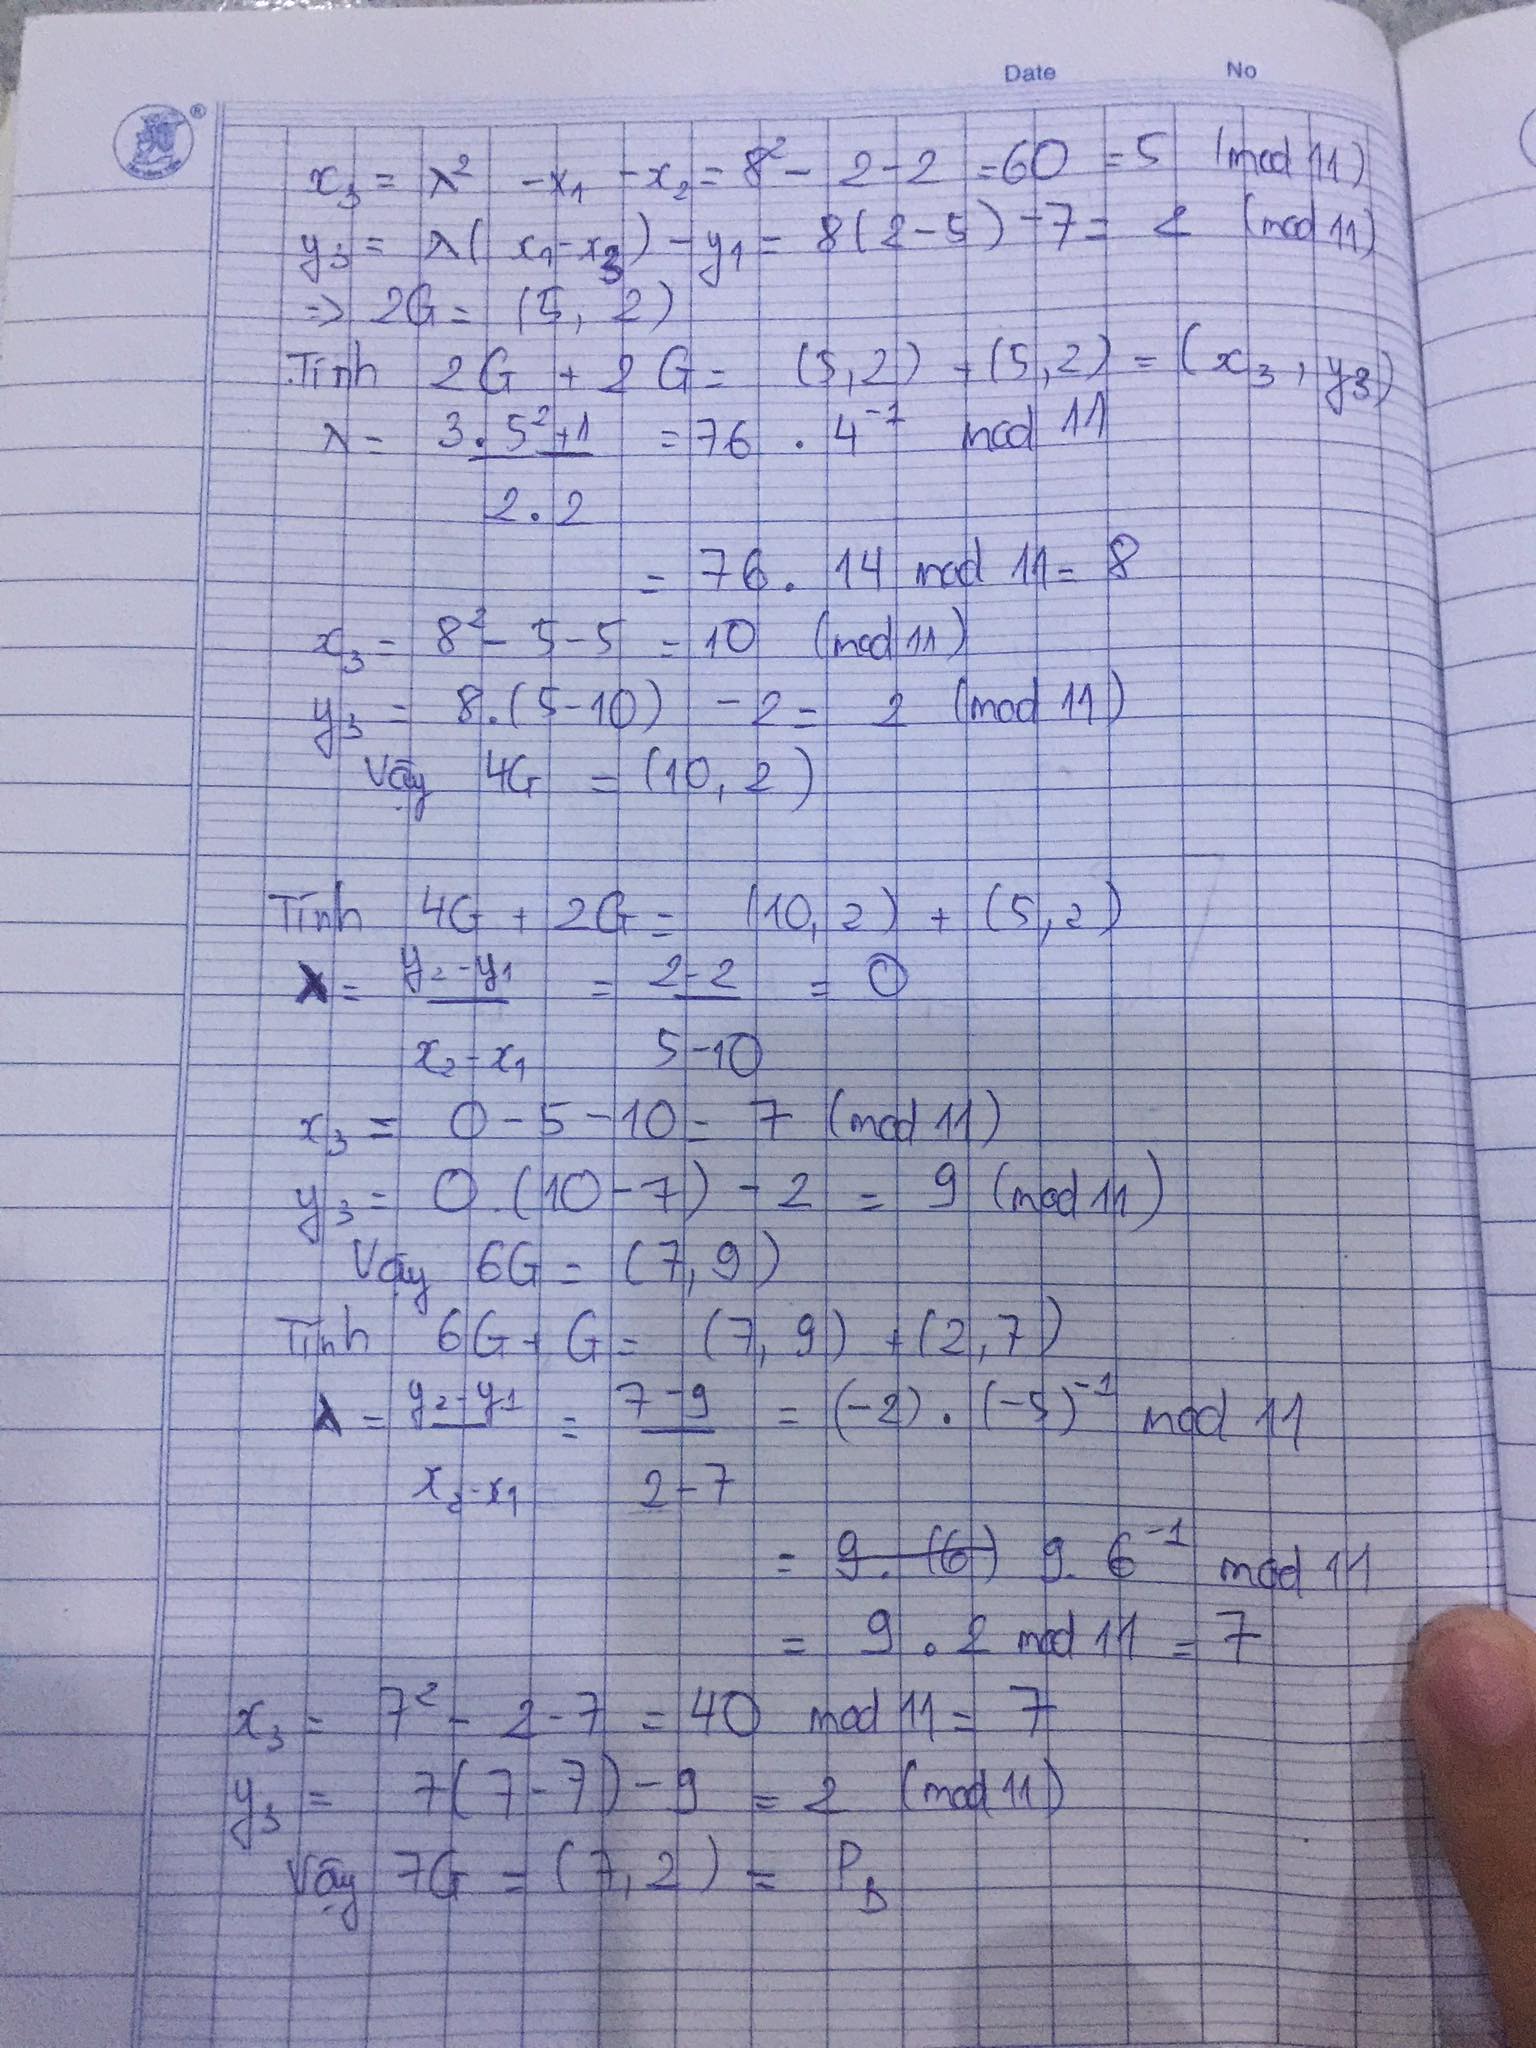 Date No
x₃ = λ² - x₁ - x₂ = 8² - 2 - 2 = 60 = 5 (mod 11)
y₃ = λ(x₁ - x₃) - y₁ = 8(2 - 5) - 7 = 2 (mod 11)
=> 2G = (5, 2)
Tính 2G + 2G = (5, 2) + (5, 2) = (x₃, y₃)
λ = 3.5² + 1 / 2.2 = 76 . 4⁻¹ mod 11
= 76 . 14 mod 11 = 8
x₃ = 8² - 5 - 5 = 10 (mod 11)
y₃ = 8.(5 - 10) - 2 = 2 (mod 11)
Vậy 4G = (10, 2)
Tính 4G + 2G = (10, 2) + (5, 2)
λ = y₂ - y₁ / x₂ - x₁ = 2 - 2 / 5 - 10 = 0
x₃ = 0 - 5 - 10 = 7 (mod 11)
y₃ = 0.(10 - 7) - 2 = 9 (mod 11)
Vậy 6G = (7, 9)
Tính 6G + G = (7, 9) + (2, 7)
λ = y₂ - y₁ / x₂ - x₁ = 7 - 9 / 2 - 7 = (-2) . (-5)⁻¹ mod 11
= 9. (6) 9. 6⁻¹ mod 11
= 9 . 2 mod 11 = 7
x₃ = 7² - 2 - 7 = 40 mod 11 = 7
y₃ = 7(7 - 7) - 9 = 2 (mod 11)
Vậy 7G = (7, 2) = P_B